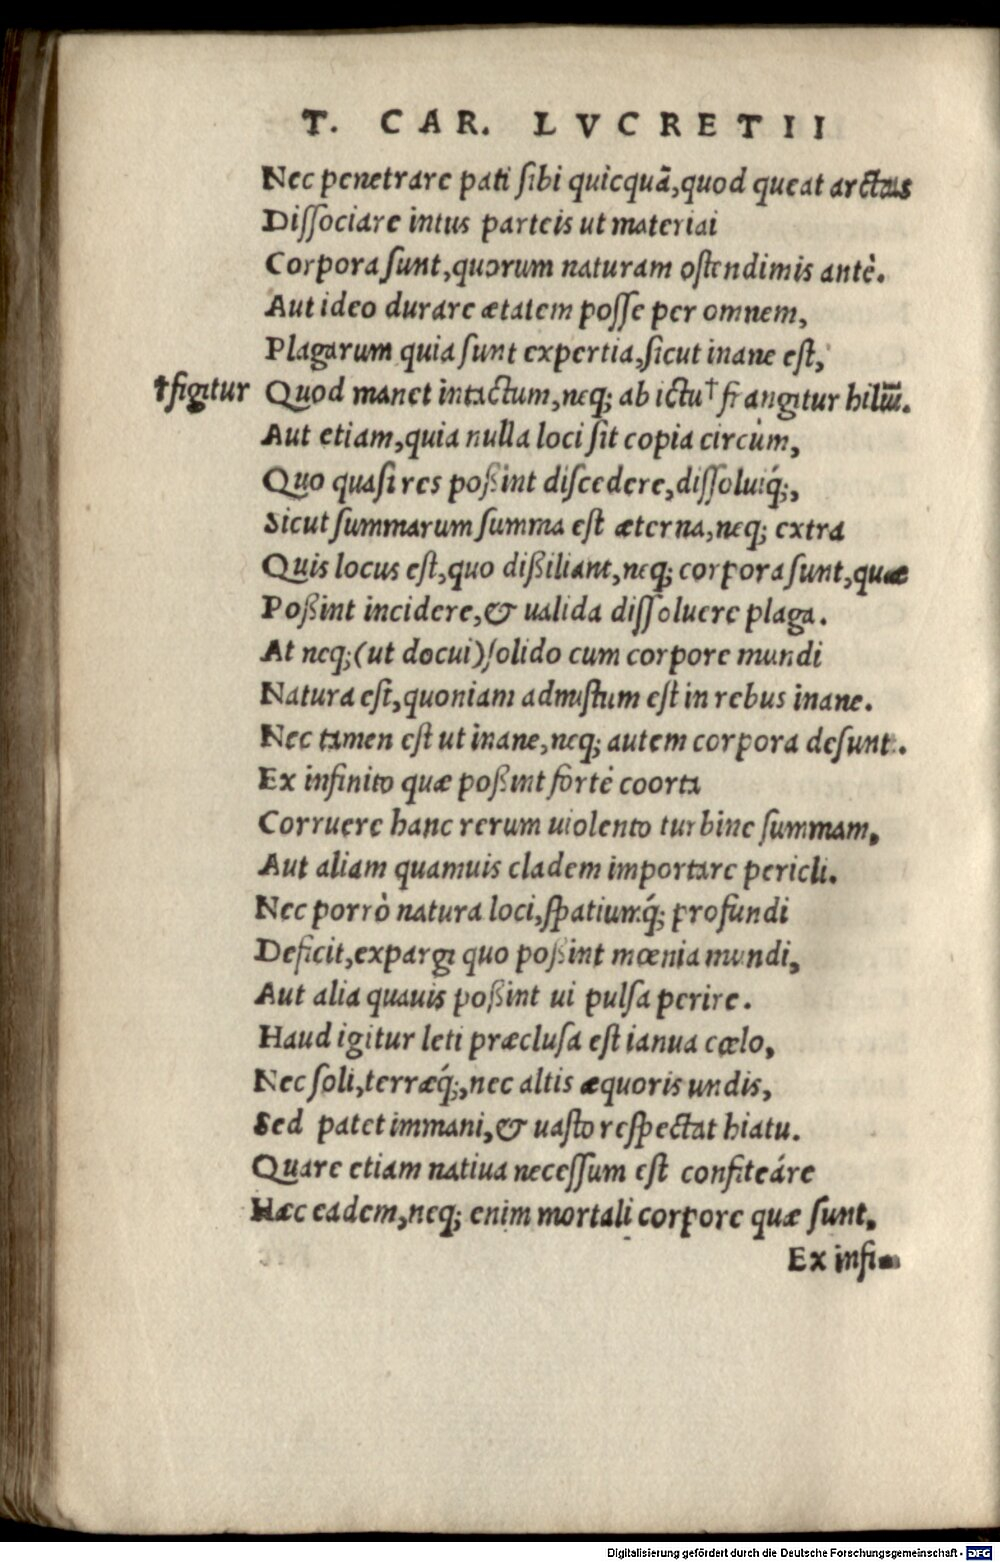 T. CAR. LVCRETII
Nec penetrare pati sibi quicquã, quod queat arctas
Dissociare intus parteis ut materiai
Corpora sunt, quorum naturam ostendimis antè.
Aut ideo durare ætatem posse per omnem,
Plagarum quia sunt expertia, sicut inane est,
†figitur Quod manet intactum, neq; ab ictu † frangitur hilũ.
Aut etiam, quia nulla loci sit copia circùm,
Quo quasi res poßint discedere, dissoluiq́;,
Sicut summarum summa est æterna, neq; extra
Quis locus est, quo dißiliant, neq; corpora sunt, quæ
Poßint incidere, & ualida dissoluere plaga.
At neq; (ut docui) solido cum corpore mundi
Natura est, quoniam admistum est in rebus inane.
Nec tamen est ut inane, neq; autem corpora desunt.
Ex infinito quæ poßint fortè coorta
Corruere hanc rerum uiolento turbine summam,
Aut aliam quamuis cladem importare pericli.
Nec porrò natura loci, spatiumq́; profundi
Deficit, expargi quo poßint mœnia mundi,
Aut alia quauis poßint ui pulsa perire.
Haud igitur leti præclusa est ianua cœlo,
Nec soli, terræq́;, nec altis æquoris undis,
Sed patet immani, & uasto respectat hiatu.
Quare etiam natiua necessum est confiteáre
Hæc eadem, neq; enim mortali corpore quæ sunt,
Ex infi-
Digitalisierung gefördert durch die Deutsche Forschungsgemeinschaft - DFG